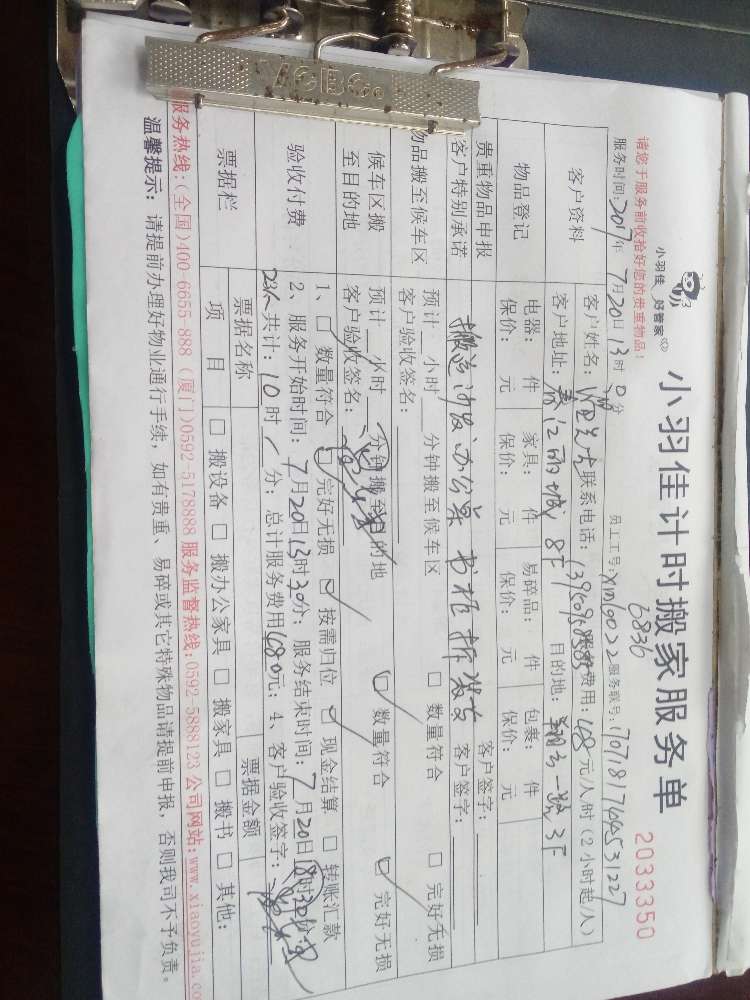 VOBO
小羽佳 好管家
小羽佳计时搬家服务单
2033350
请您于服务前收拾好您的贵重物品！
6836
服务时间：2017年 7月20日 13时 0分
员工工号：XM60022
服务联号：
客户资料
客户姓名：
联系电话：
费用：68元/人/时(2小时起/人)
客户地址：
8F
目的地：
3F
物品登记
电器： 件 家具： 件 易碎品： 件 包裹： 件
保价： 元 保价： 元 保价： 元 保价： 元
贵重物品申报
客户特别承诺
搬运沙发办公桌 书柜拆装
客户签字：
客户签字：
物品搬至候车区
预计 小时 分钟搬至候车区 □ 数量符合 □ 完好无损
客户验收签名：
候车区搬
至目的地
预计 小时 分钟搬至目的地 □ 数量符合 □ 完好无损
客户验收签名：
验收付费
1、□ 数量符合 □ 完好无损 □ 按需归位 □ 现金结算 □ 转账汇款
2、服务开始时间：7月20日13时30分；服务结束时间：7月20日18时30分
2人共计：10时 / 分；总计服务费用680元；4、客户验收签字：
票据栏
票据名称
票据金额
项 目
□ 搬设备 □ 搬办公家具 □ 搬家具 □ 搬书 □ 其他：
服务热线：(全国)400-6655-888 (厦门)0592-5178888 服务监督热线：0592-5888123 公司网站：www.xiaoyujia.co
温馨提示：请提前办理好物业通行手续，如有贵重、易碎或其它特殊物品请提前申报，否则我司不予负责。